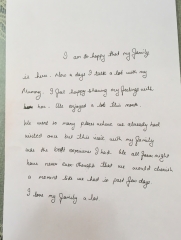 I am so happy that my family
is here. Now a days I talk a lot with my
Mummy. I feel happy sharing my feelings with
her. We enjoyed a lot this week.
We went to many places where we already had
visited once but this visit with my family
was the best experience I had. We all four might
have never even thought that we would cherish
a moment like we had in past few days.
I love my family a lot.